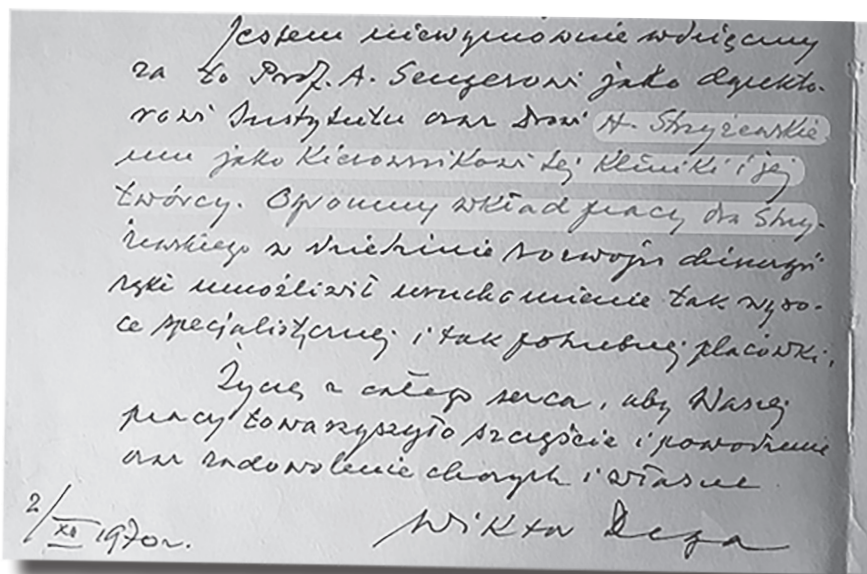 Jestem niewymownie wdzięczny
za to Prof. A. Sengerowi jako dyrekto-
rowi Instytutu oraz Drowi H. Stryżewskie
mu jako Kierownikowi tej Kliniki i jej
twórcy. Ogromny wkład pracy dra Stry-
żewskiego w dziedzinie rozwoju chirurgii
ręki umożliwił uruchomienie tak wyso-
ce specjalistycznej i tak potrzebnej placówki.
Życzę z całego serca, aby Waszej
pracy towarzyszyło szczęście i powodzenie
oraz zadowolenie chorych i własne
2/XII 1970 r.
Wiktor Dega